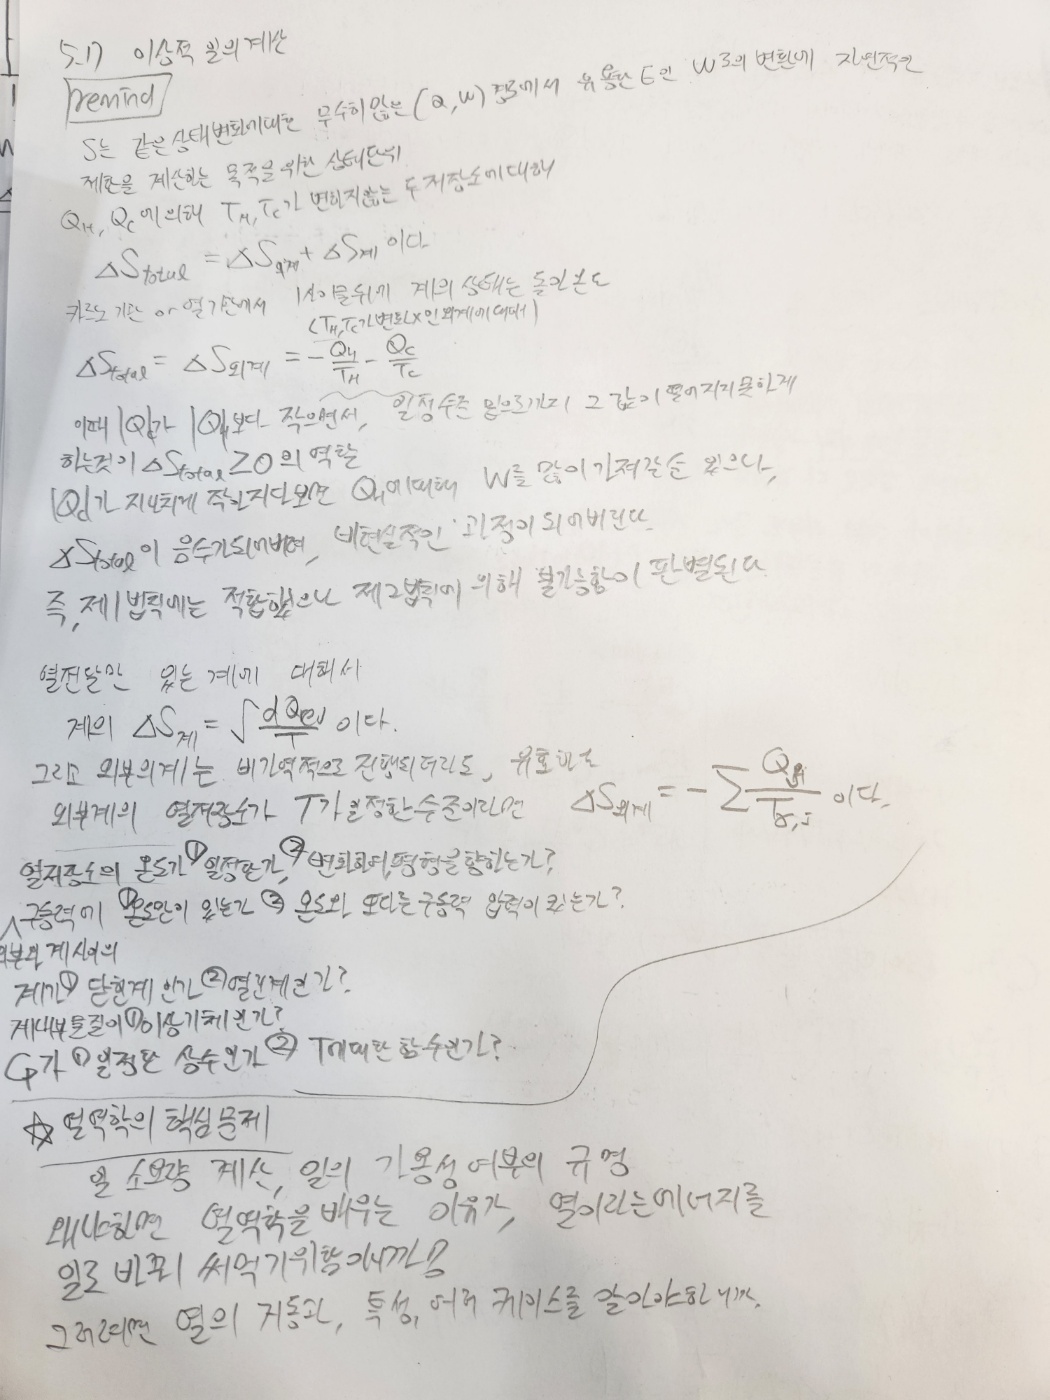 5.17 이상적 일의 계산
remind
S는 같은 상태변화에 대한 무수히 많은 (Q, W) 경로에서 유용한 E인 W로의 변환에 자연적인
제한을 계산하는 목적을 위한 상태
Q_H, Q_C에 의해 T_H, T_C가 변하지않는 두 저장소에 대해
ΔS_total = ΔS_외계 + ΔS_계 이다
카르노 기관 or 열기관에서 1사이클뒤에 계의 상태는 돌아온다
(T_H, T_C가 변화X인 외계에 대해)
ΔS_total = ΔS_외계 = -Q_H/T_H - Q_C/T_C
이때 |Q_C|가 |Q_H|보다 작으면서, 일정수준 밑으로까지 그 값이 떨어지지 못하게
하는것이 ΔS_total ≥ 0 의 역할
|Q_C|가 지나치게 작아지다보면 Q_H에 대해 W를 많이 가져갈순 있으나,
ΔS_total이 음수가 되어버려, 비현실적인 과정이 되어버린다.
즉, 제1법칙에는 적합했으나 제2법칙에 의해 불가능함이 판별된다
열전달만 있는 계에 대해서
계의 ΔS_계 = ∫ dQ_rev/T 이다.
그리고 외부의계는 비가역적으로 진행되더라도, 유효한
외부계의 열저장소가 T가 일정한 수준이라면 ΔS_외계 = -∑ Q_j/T_σ,j 이다.
열저장소의 온도가 ① 일정한가, ② 변화하여, 평형을 향하는가?
구동력에 ① 온도만이 있는가 ② 온도와 또다른 구동력 압력이 있는가?
외부와 계사이의
계가 ① 닫힌계인가 ② 열린계인가?
계내부물질이 ① 이상기체인가?
Cp가 ① 일정한 상수인가 ② T에 대한 함수인가?
☆ 열역학의 핵심문제
일 소요량 계산, 일의 가용성 여부의 규명
왜냐하면 열역학을 배우는 이유가, 열이라는 에너지를
일로 바꿔 써먹기위함이니까!
그러려면 열의 거동과, 특성, 여러 케이스를 알아야하니까.